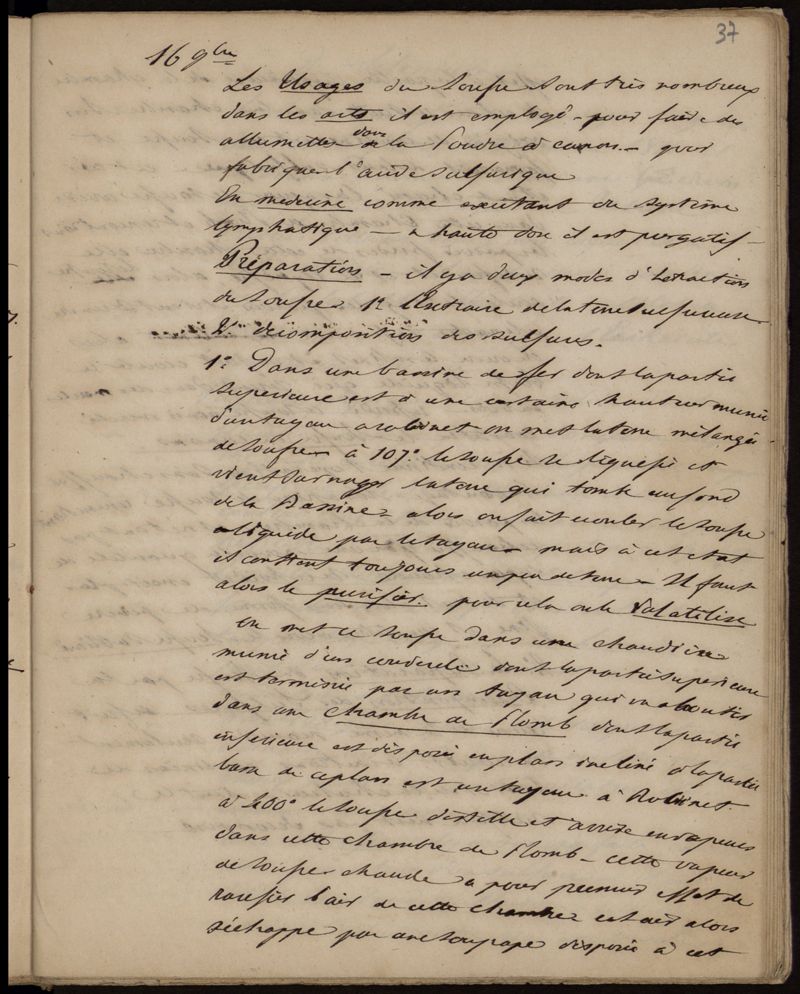 37
16 9bre
Les Usages du soufre sont très nombreux
dans les arts il est employé - pour faire des
allumettes dans la Poudre à canon - pour
fabriquer l'acide sulfurique
En medecine comme excitant du système
lymphatique - a haute dose il est purgatif -
Préparation - il y a deux modes d'extraction
du soufre 1° l'extraire de la terre sulfureuse
2° décomposition des sulfures.
1° Dans une bassine de fer dont la partie
superieure est à une certaine hauteur munie
d'un tuyau a robinet on met la terre mélangée
de soufre - à 107° le soufre se liquefie et
vient surnager la terre qui tombe au fond
de la Bassine - alors on fait couler le soufre
liquide par le tuyau - mais à cet etat
il contient toujours un peu de terre - Il faut
alors le purifier. pour cela on le Volatilise
on met ce soufre dans une chaudière
munie d'un couvercle dont la partie superieure
est terminée par un tuyau qui va aboutir
dans une chambre de Plomb dont la partie
inferieure est disposée en plan incliné à la partie
basse de ce plan est un tuyau à Robinet.
à 400° le soufre distille et arrive en vapeurs
dans cette chambre de Plomb - cette vapeur
de soufre chaude a pour premier effet de
rarefier l'air de cette chambre cet air alors
s'échappe par une soupape disposée à cet